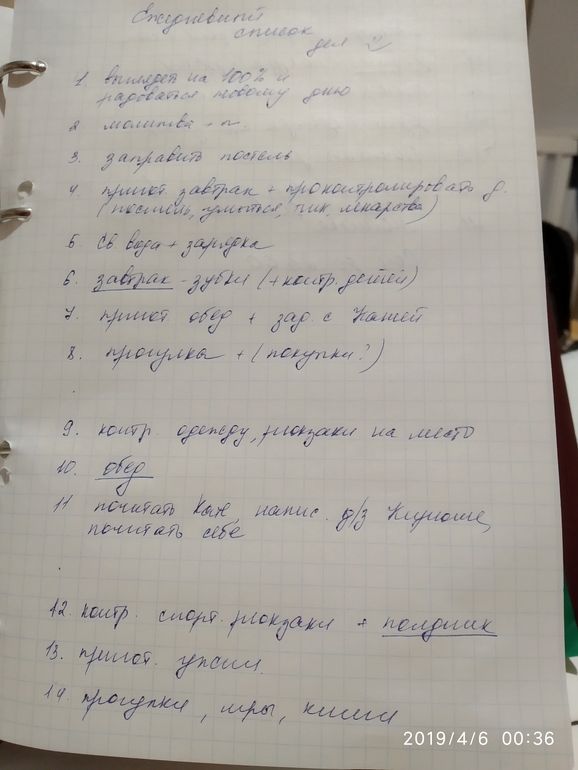 Ежедневный
список
дел
1. выглядеть на 100% и
радоваться новому дню
2. молитва
3. заправить постель
4. пригот. завтрак + проконтролировать д.
(постель, умыться, лекарства)
5. Св вода + зарядка
6. завтрак - зубки (+ контр. детей)
7. пригот обед + зад. с
8. прогулка + (покупки?)
9. контр. одежду, рюкзаки на место
10. обед
11 почитать напис. д/з
почитать себе
12. контр. спорт. рюкзаки + полдник
13. пригот. ужин
14. прогулки, игры, книги
2019/4/6 00:36